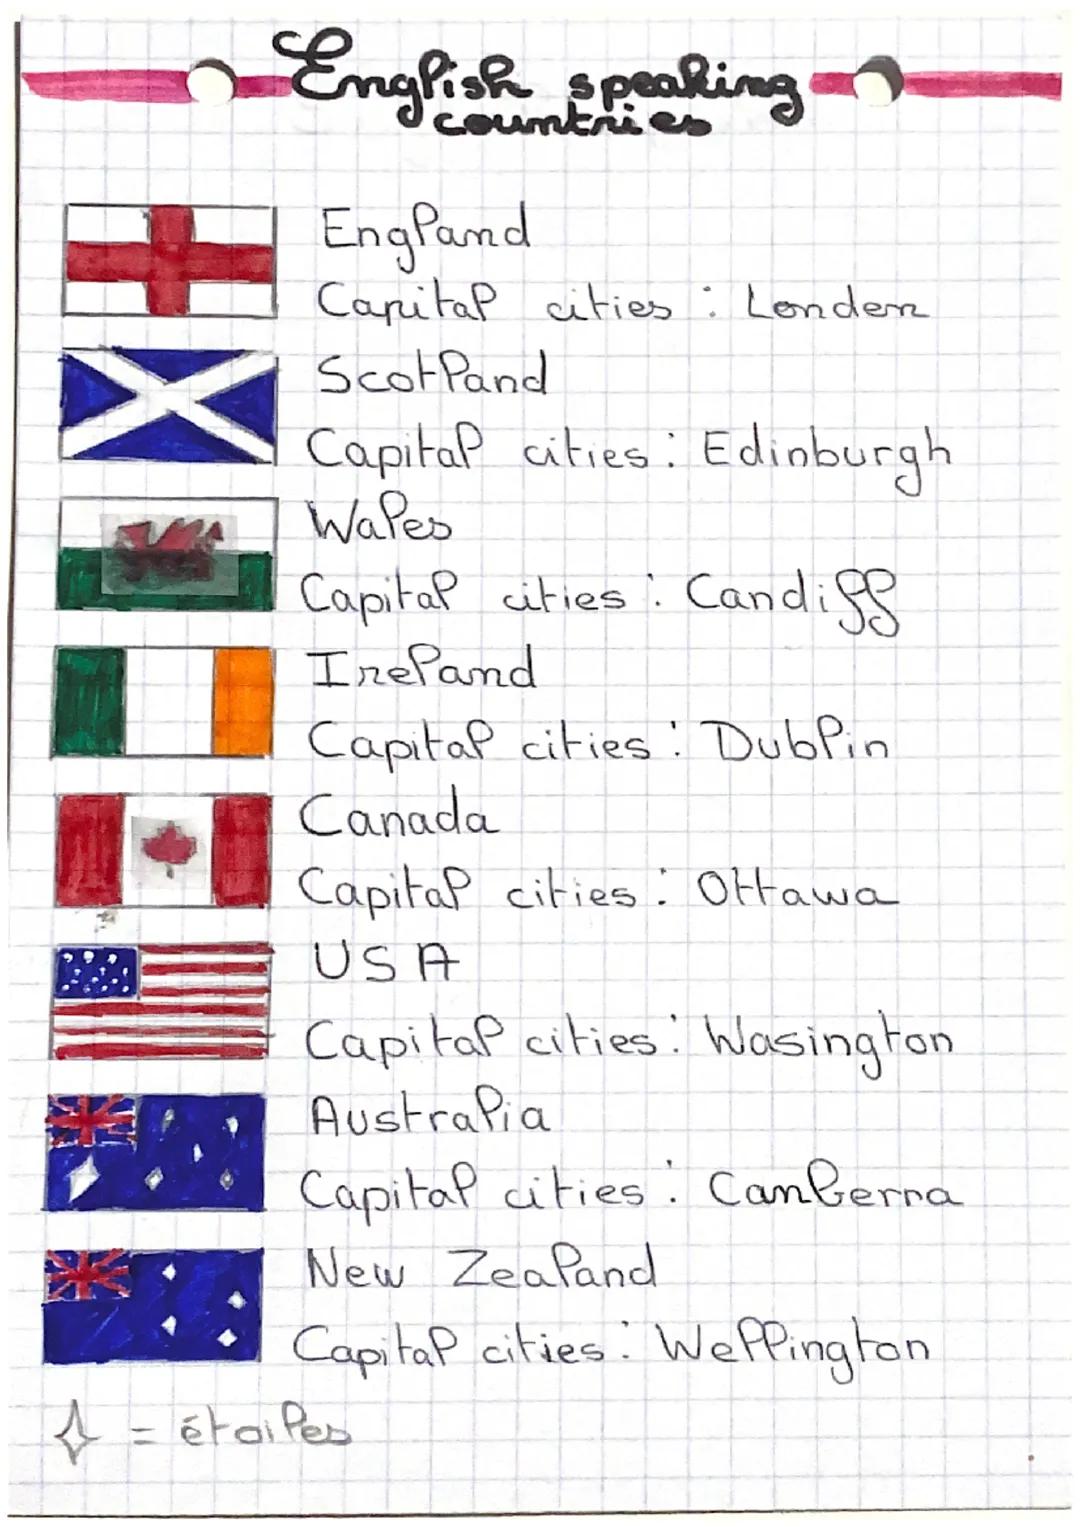 English speaking
countries
England
Capital cities : London
Scotland
Capital cities : Edinburgh
Wales
Capital cities : Candiff
Ireland
Capital cities : Dublin
Canada
Capital cities : Ottawa
USA
Capital cities : Wasington
Australia
Capital cities : Canberra
New Zealand
Capital cities : Wellington
= étoiles